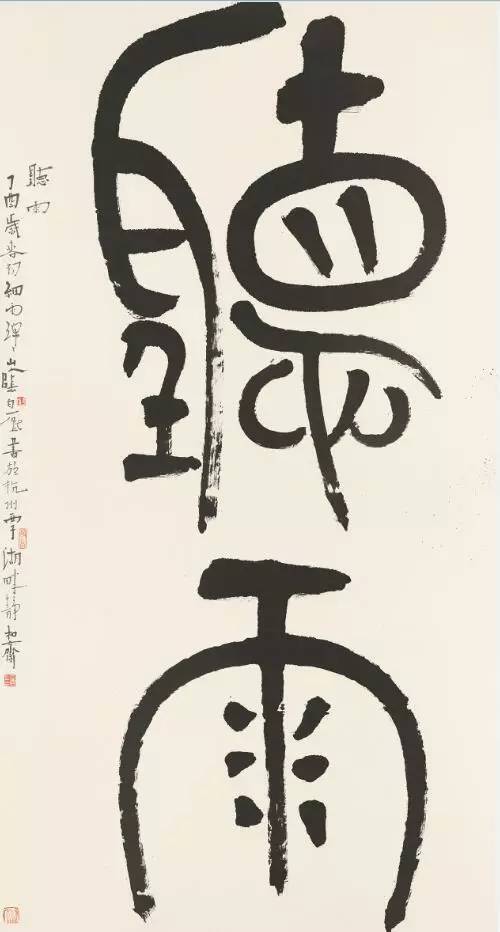 聽雨
聽雨
丁酉歲春初細雨山陰白砥書於杭州西子湖畔靜和齋